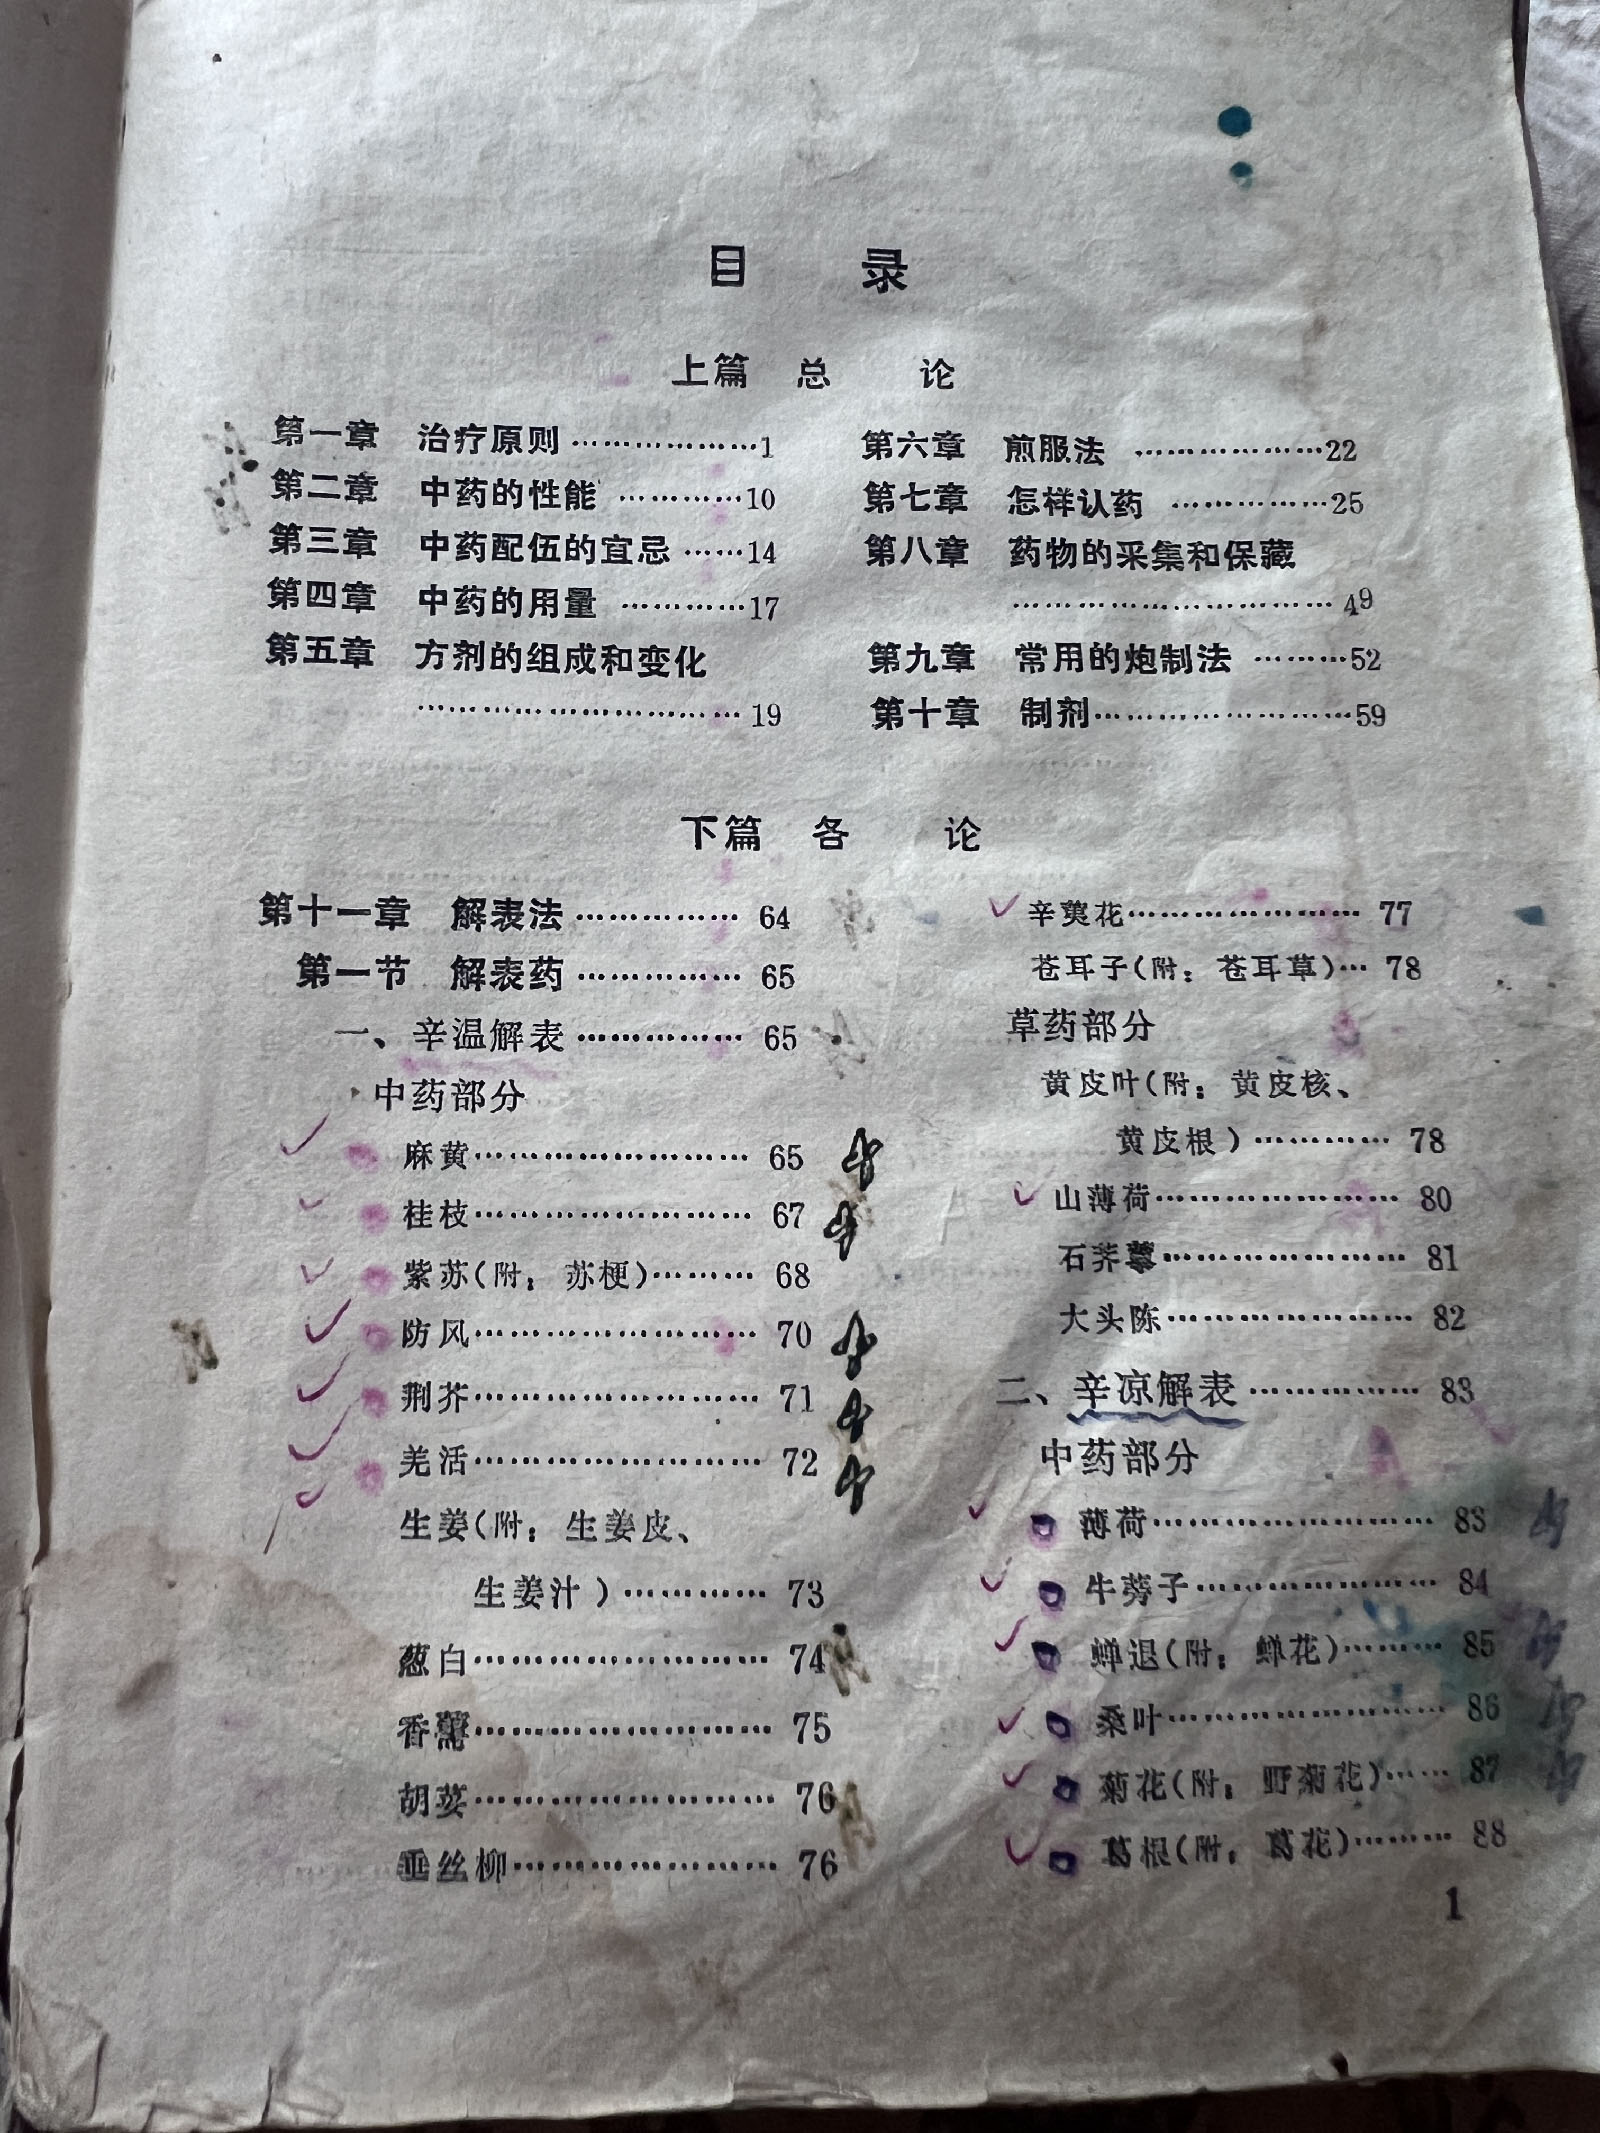 目 录
上篇 总 论
第一章 治疗原则 ………………1
第二章 中药的性能 …………10
第三章 中药配伍的宜忌 ……14
第四章 中药的用量 …………17
第五章 方剂的组成和变化
…………………………19
第六章 煎服法 ………………22
第七章 怎样认药 ……………25
第八章 药物的采集和保藏
…………………………49
第九章 常用的炮制法 ………52
第十章 制剂……………………59
下篇 各 论
第十一章 解表法 …………… 64
第一节 解表药 …………… 65
一、辛温解表 …………… 65
中药部分
麻黄……………………… 65
桂枝……………………… 67
紫苏(附：苏梗)……… 68
防风……………………… 70
荆芥……………………… 71
羌活……………………… 72
生姜(附：生姜皮、
生姜汁)………… 73
葱白……………………… 74
香薷……………………… 75
胡荽……………………… 76
垂丝柳…………………… 76
辛荑花………………… 77
苍耳子(附：苍耳草)… 78
草药部分
黄皮叶(附：黄皮核、
黄皮根)………… 78
山薄荷………………… 80
石荠薴………………… 81
大头陈………………… 82
二、辛凉解表 …………… 83
中药部分
薄荷…………………… 83
牛蒡子………………… 84
蝉退(附：蝉花)……… 85
桑叶…………………… 86
菊花(附：野菊花)…… 87
葛根(附：葛花)……… 88
1